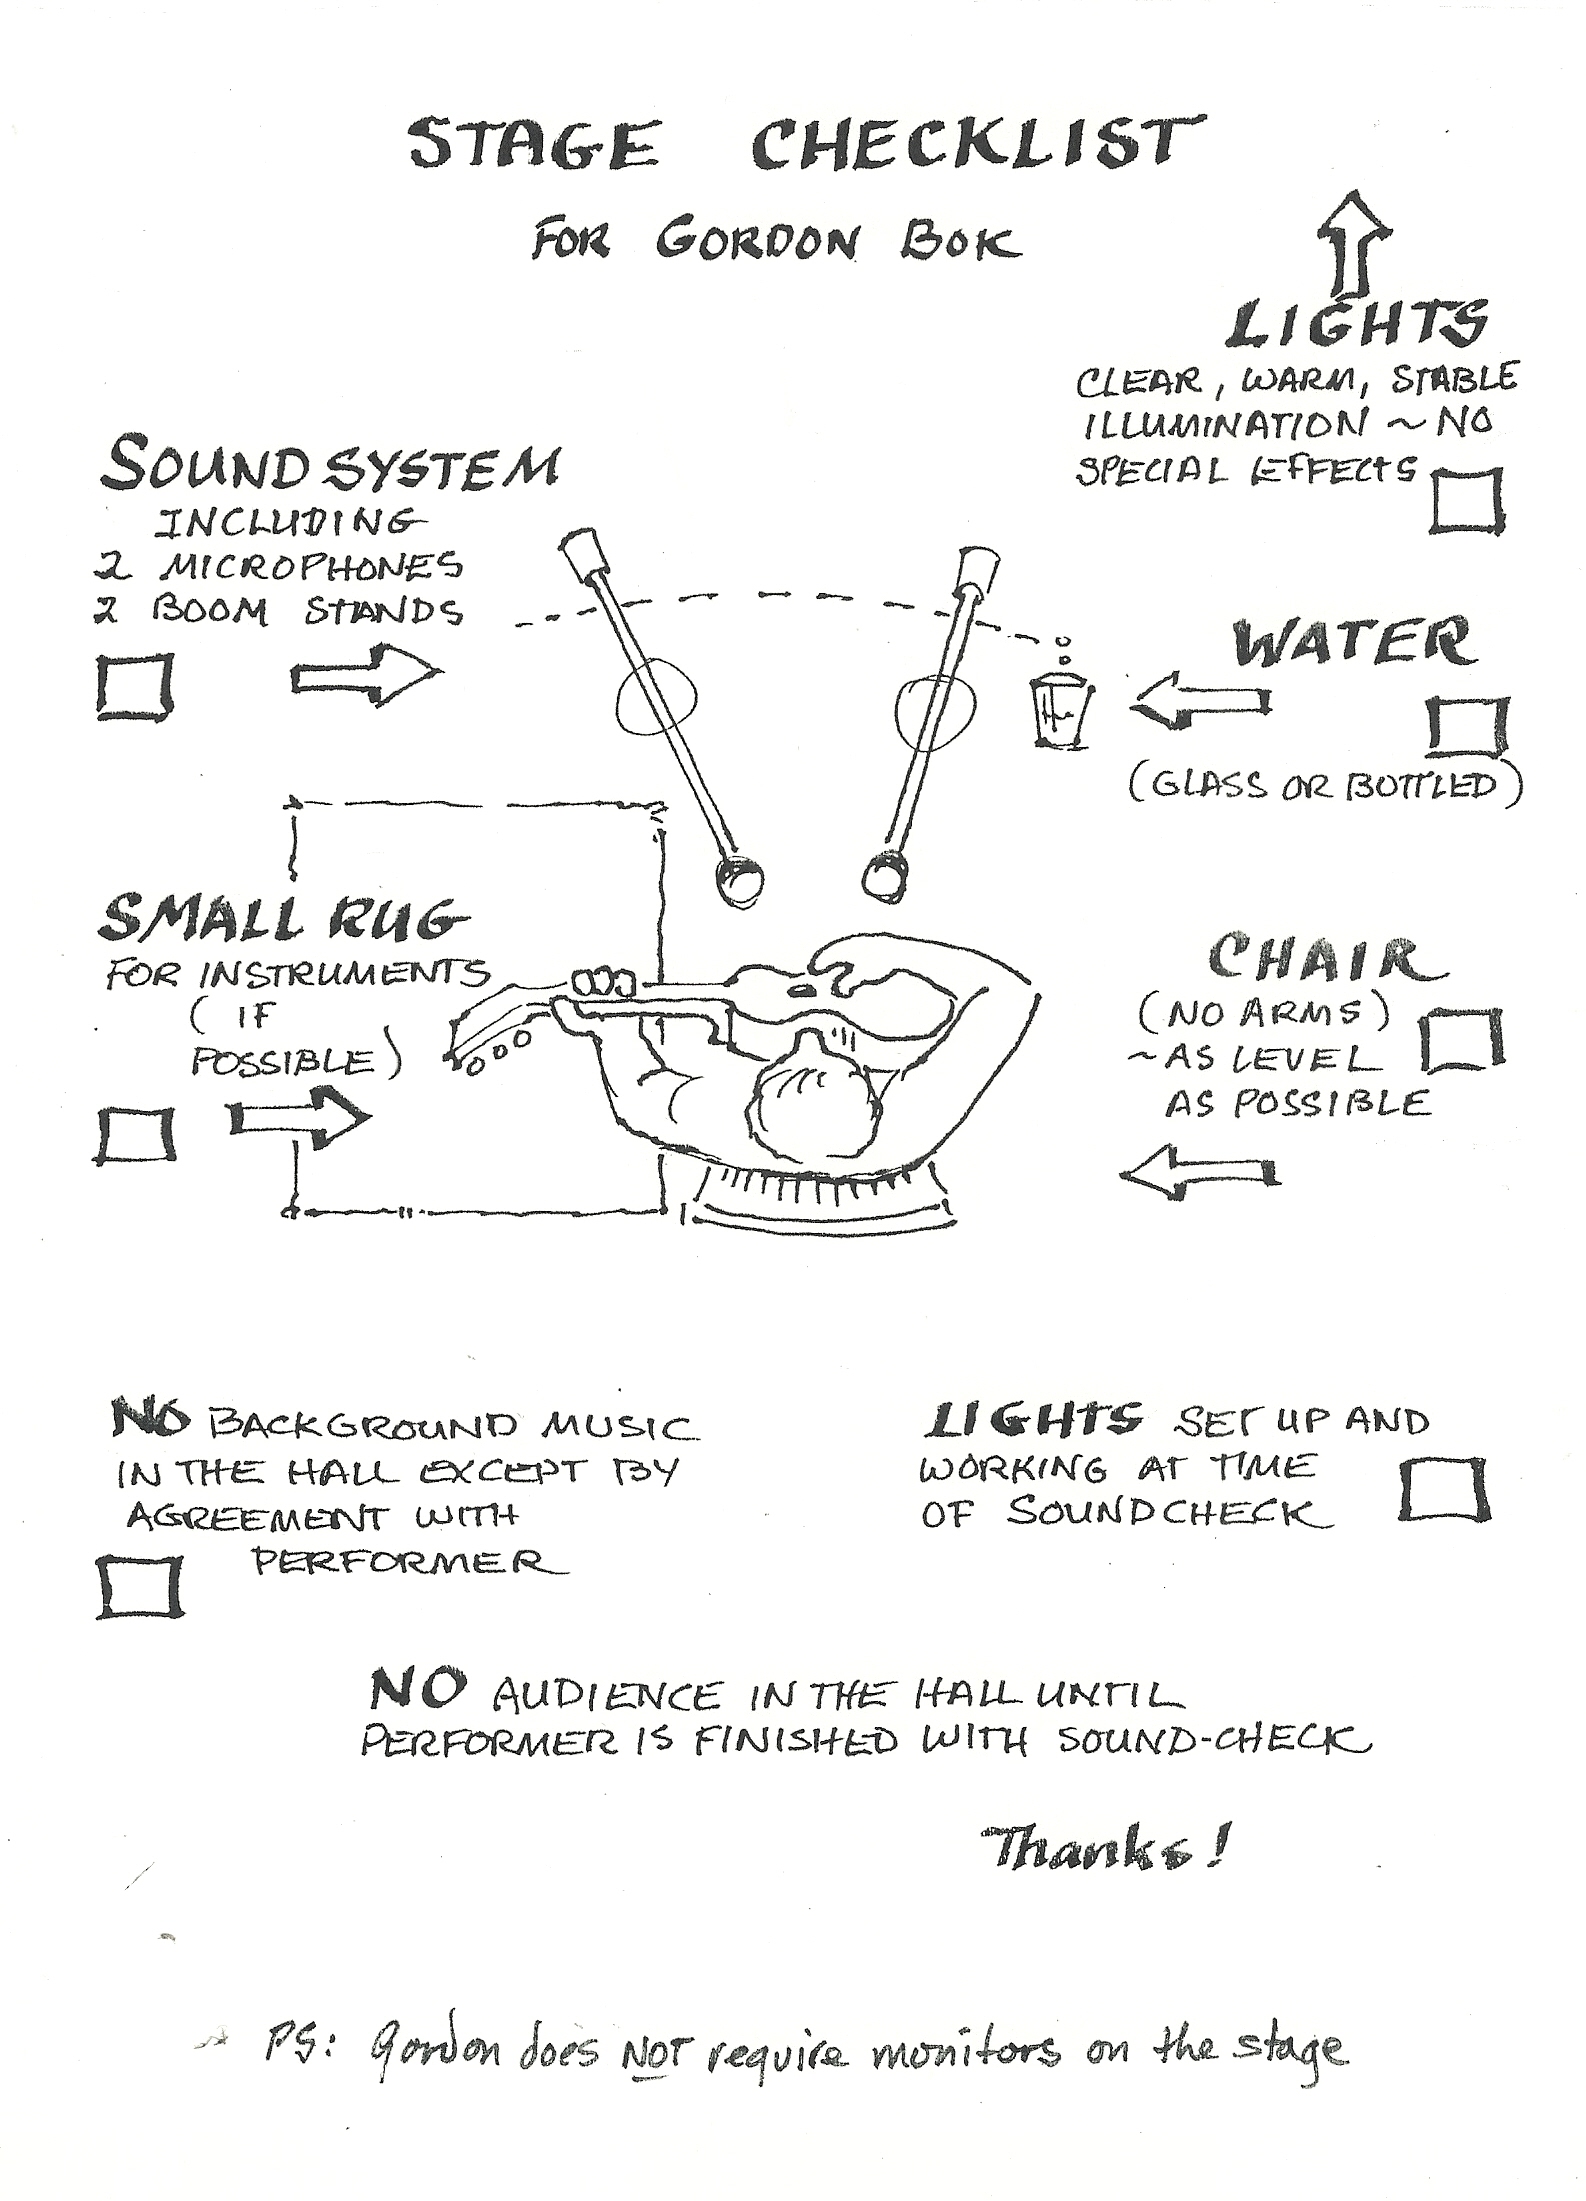 STAGE CHECKLIST
FOR GORDON BOK
LIGHTS
CLEAR, WARM, STABLE
ILLUMINATION ~ NO
SPECIAL EFFECTS
SOUND SYSTEM
INCLUDING
2 MICROPHONES
2 BOOM STANDS
WATER
(GLASS OR BOTTLED)
SMALL RUG
FOR INSTRUMENTS
(IF
POSSIBLE)
CHAIR
(NO ARMS)
~AS LEVEL
AS POSSIBLE
NO BACKGROUND MUSIC
IN THE HALL EXCEPT BY
AGREEMENT WITH
PERFORMER
LIGHTS SET UP AND
WORKING AT TIME
OF SOUNDCHECK
NO AUDIENCE IN THE HALL UNTIL
PERFORMER IS FINISHED WITH SOUND-CHECK
Thanks!
PS: Gordon does NOT require monitors on the stage